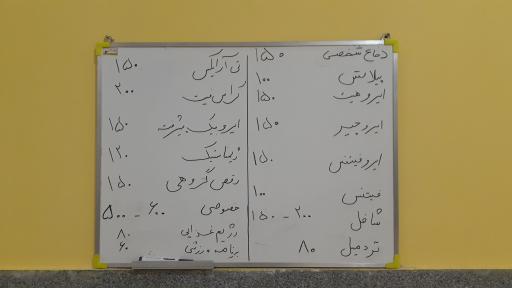 دفاع شخصی ۱۵۰
پیلاتس ۱۰۰
ایروهیت ۱۵۰
ایروجیبر ۱۵۰
ایروفیتنس ۱۵۰
فیتنس ۱۰۰
شافل ۲۰۰ - ۱۵۰
تردمیل ۸۰
تی آر ایکس ۱۵۰
کراس فیت ۲۰۰
ایروبیک پیشرفته ۱۵۰
ژیمناستیک ۱۲۰
رقص گروهی ۱۵۰
خصوصی ۶۰۰ - ۵۰۰
رژیم غذایی ۸۰
برنامه ورزشی ۶۰